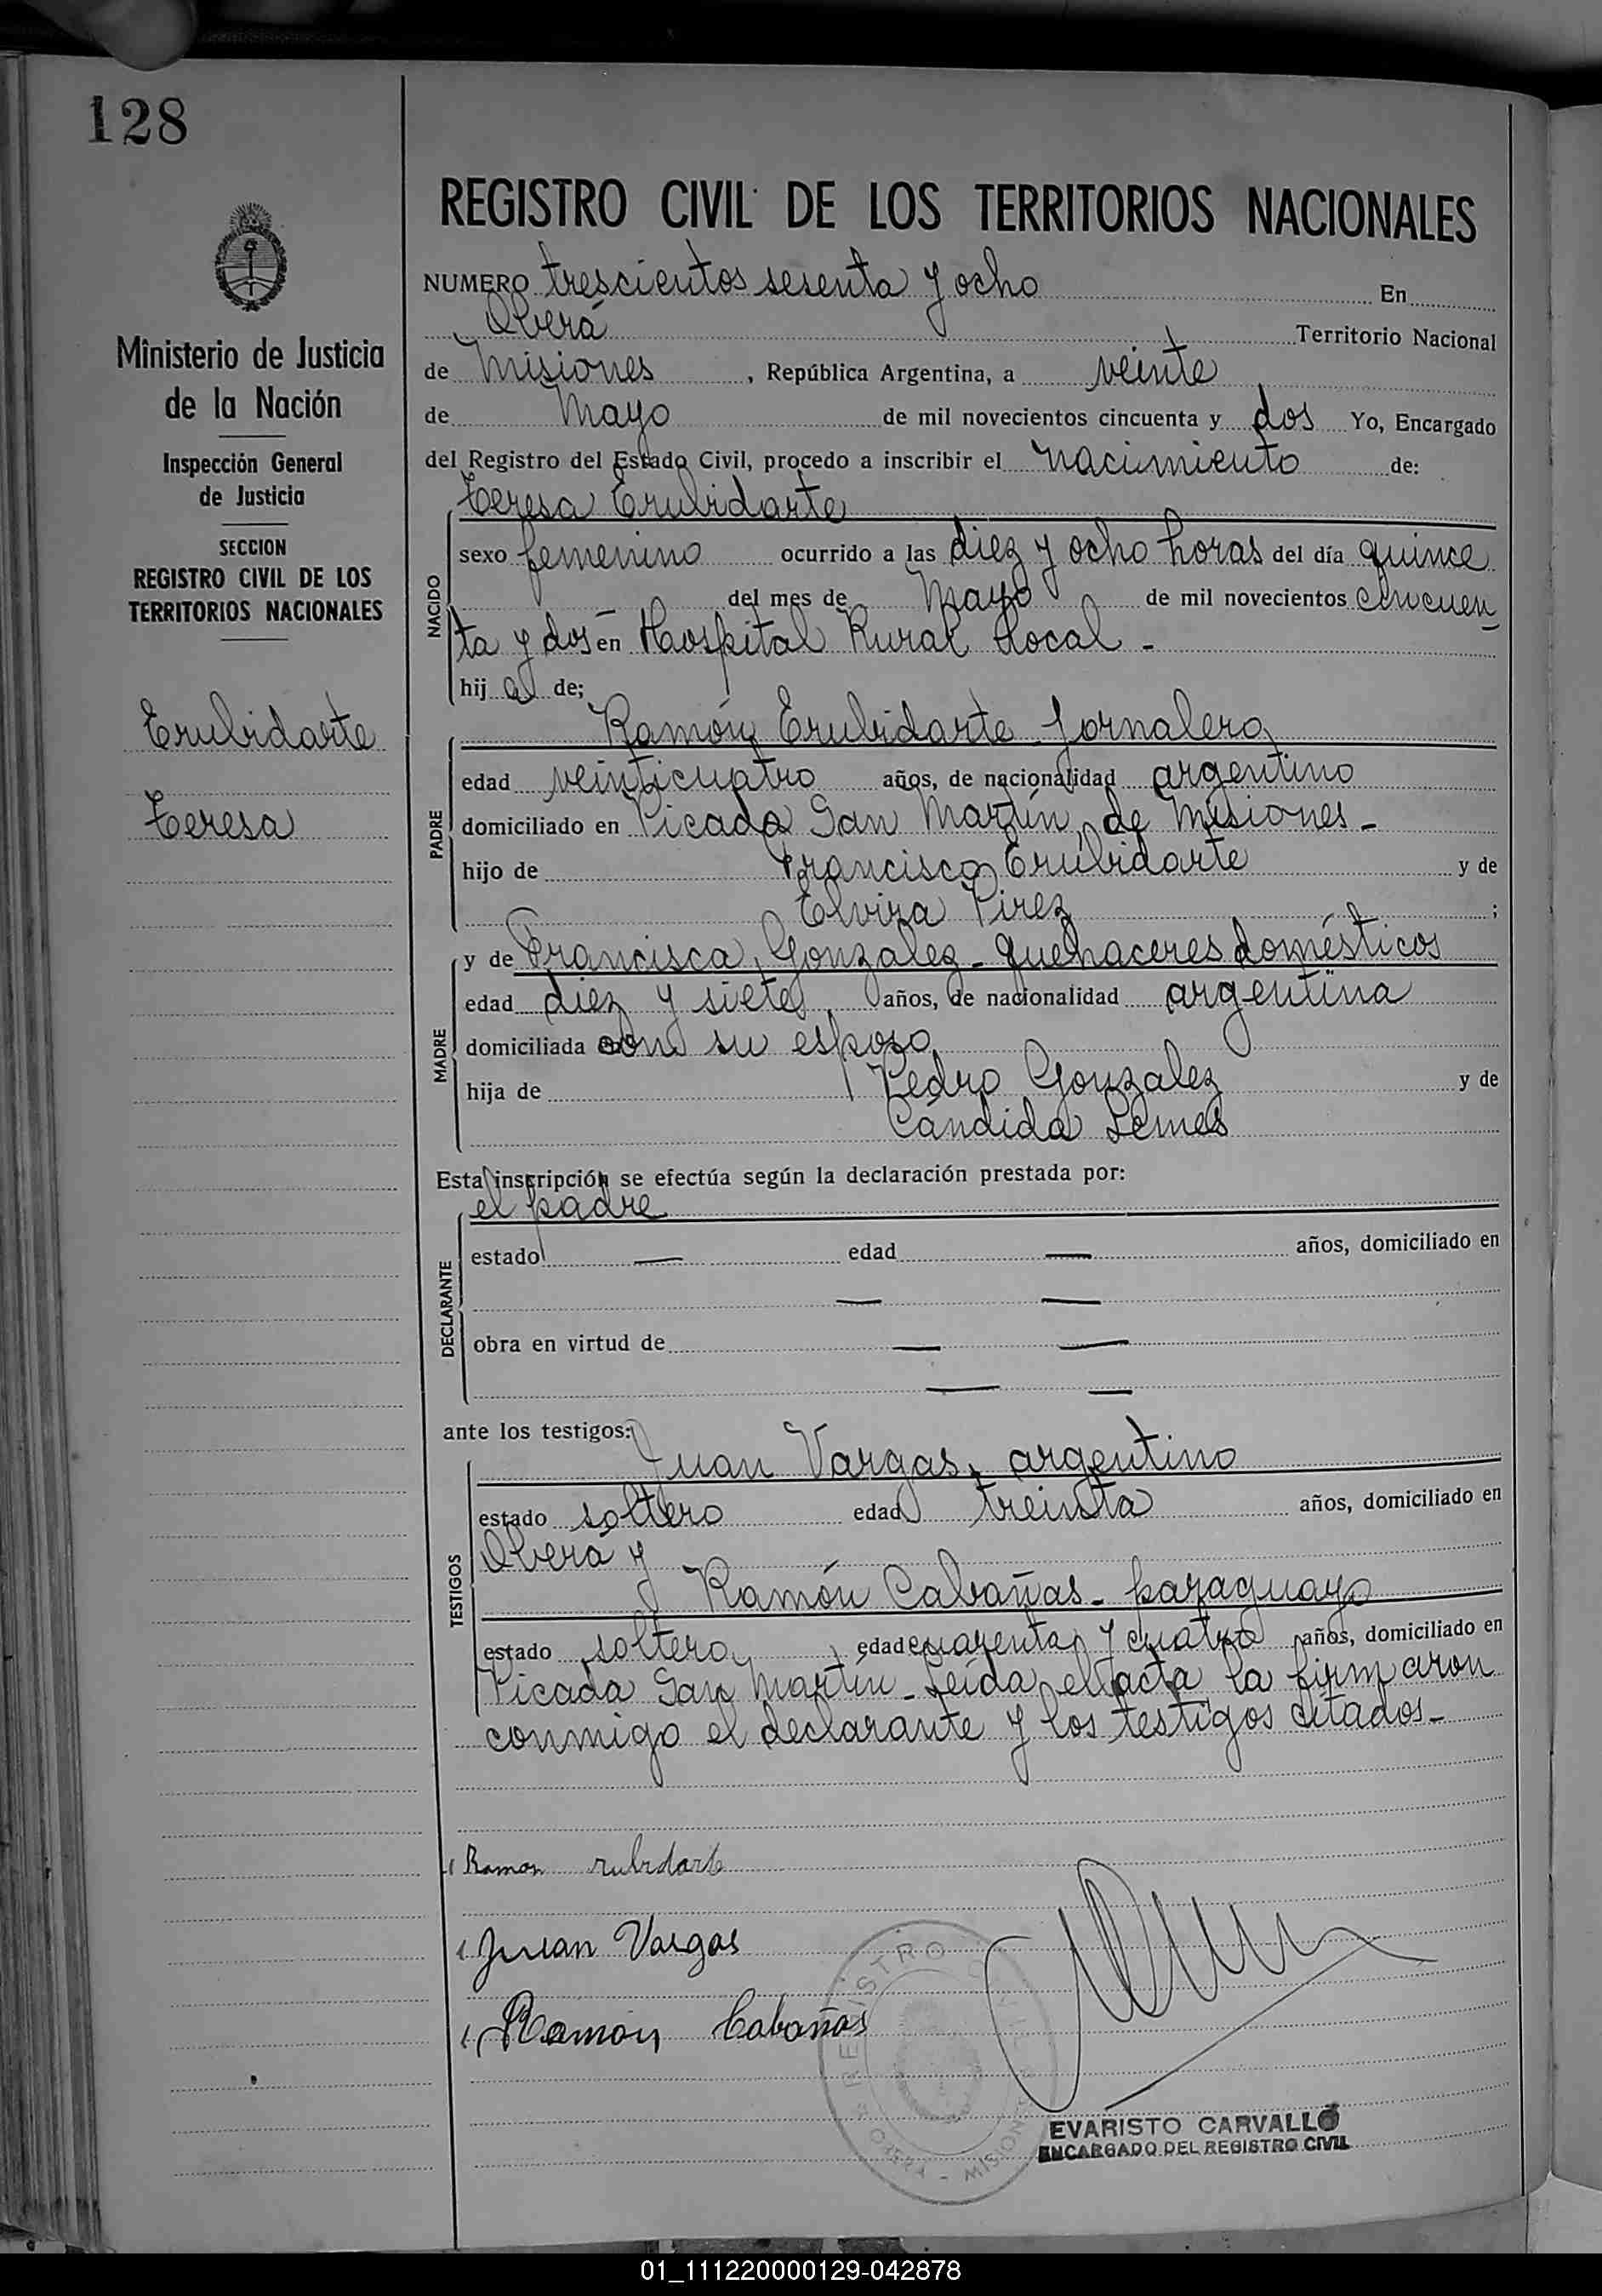 128
REGISTRO CIVIL DE LOS TERRITORIOS NACIONALES
Ministerio de Justicia
de la Nación
Inspección General
de Justicia
SECCION
REGISTRO CIVIL DE LOS
TERRITORIOS NACIONALES
Erubidarte
Teresa
NUMERO trescientos sesenta y ocho En
Oberá Territorio Nacional
de Misiones, República Argentina, a veinte
de Mayo de mil novecientos cincuenta y dos Yo, Encargado
del Registro del Estado Civil, procedo a inscribir el nacimiento de:
Teresa Erubidarte
NACIDO
sexo femenino ocurrido a las diez y ocho horas del día quince
del mes de Mayo de mil novecientos cincuen
ta y dos en Hospital Rural Local -
hij a de;
PADRE
Ramón Erubidarte - Jornalero
edad veinticuatro años, de nacionalidad argentino
domiciliado en Picada San Martín, de Misiones -
hijo de Francisco Erubidarte y de
Elvira Pirez ;
MADRE
y de Francisca Gonzalez - quehaceres domésticos
edad diez y siete años, de nacionalidad argentina
domiciliada con su esposo
hija de Pedro Gonzalez y de
Cándida Lemes
Esta inscripción se efectúa según la declaración prestada por:
el padre
DECLARANTE
estado — edad — años, domiciliado en
— —
obra en virtud de — —
— —
ante los testigos:
TESTIGOS
Juan Vargas, argentino
estado soltero edad treinta años, domiciliado en
Oberá y
Ramón Cabañas - paraguayo
estado soltero edad cuarenta y cuatro años, domiciliado en
Picada San Martín - Leída el acta la firmaron
conmigo el declarante y los testigos citados -
Ramon rubidarte
Juan Vargas
Ramon Cabañas
REGISTRO CIVIL
MISIONES
EVARISTO CARVALLO
ENCARGADO DEL REGISTRO CIVIL
01_111220000129-042878